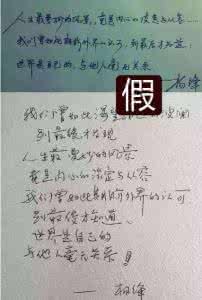 人生最曼妙的风景,竟是内心的淡定与从容……
我们曾如此期盼外界的认可,到最后才知道,
世界是自己的,与他人毫无关系
——杨绛
假
我们曾如此渴望命运的波澜
到最后才发现
人生最曼妙的风景
竟是内心的淡定与从容
我们曾如此期盼外界的认可
到最后才知道
世界是自己的
与他人毫无关系!
——杨绛